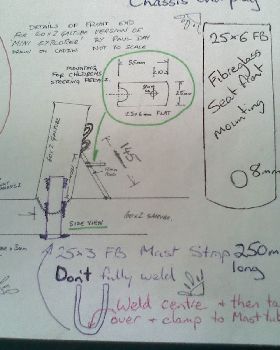 Chassis
DETAILS OF FRONT END
FOR 60x2 GALTUBE VERSION OF
"MINI EXPLORER" BY PAUL DAY
DRAWN ON CADKEY
NOT TO SCALE
MOUNTING
FOR CHILDRENS
STEERING PEDALS
55mm
25mm
25x6mm FLAT
145
60x2 GALTUBE
SIDE VIEW
60x2 GALTUBE
25x6 FB
Fibreglass
Seat front
mounting
8mm
25x3 FB Mast Strap 250mm
long
Don't fully weld
Weld centre + then tap
over + clamp to Mast tube